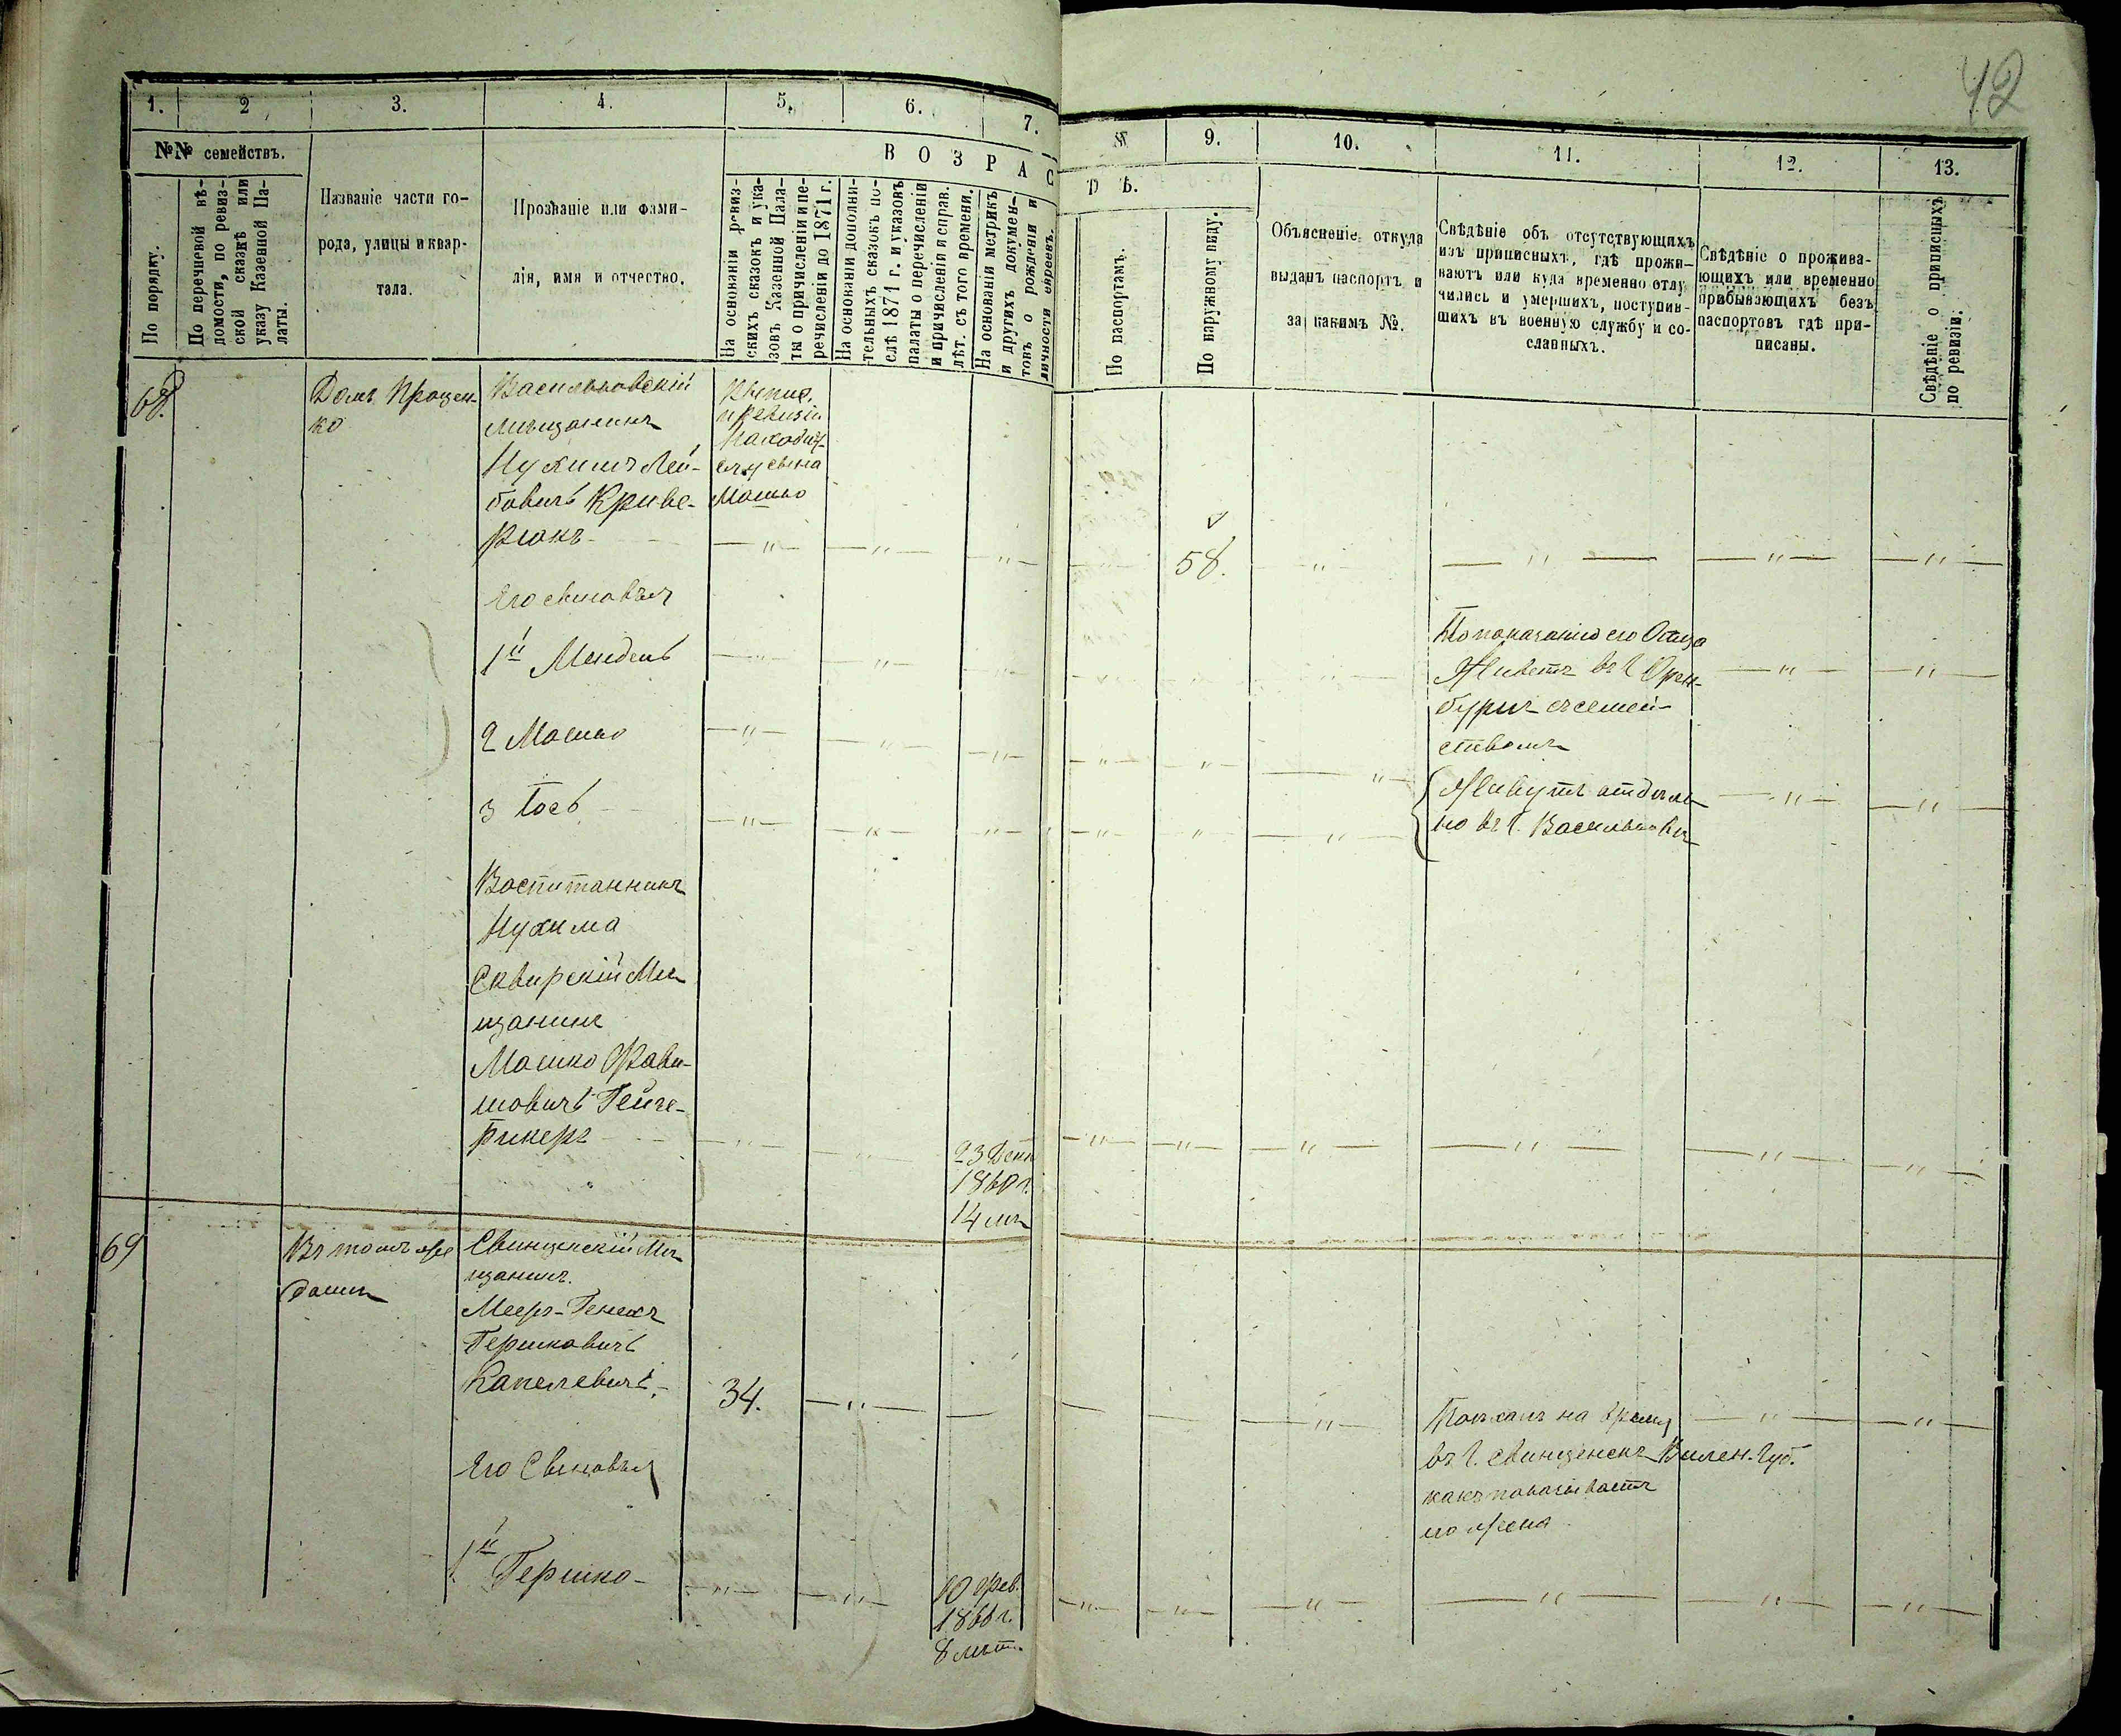 42
1. 2 3. 4. 5. 6. 7.
9. 10. 11. 12. 13.
№№ семействъ.
По порядку.
По перечневой вѣ-
домости, по ревиз-
ской сказкѣ или
указу Казенной Па-
латы.
Названіе части го-
рода, улицы и квар-
тала.
Прозваніе или фами-
лія, имя и отчество.
ВОЗРАС
На основаніи ревиз-
скихъ сказокъ и ука-
зовъ Казенной Пала-
ты о причисленіи и пе-
речисленіи до 1871 г.
На основаніи дополни-
тельныхъ сказокъ по-
слѣ 1871 г. и указовъ
палаты о перечисленіи
и причисленіи и справ.
лѣт. съ того времени.
На основаніи метрикъ
и другихъ докумен-
товъ о рожденіи и
личности евреевъ.
Ѣ.
По паспортамъ.
По наружному виду.
Объясненіе откуда
выданъ паспортъ и
за какимъ №.
Свѣдѣніе объ отсутствующихъ
изъ приписныхъ, гдѣ прожи-
ваютъ или куда временно отлу
чились и умершихъ, поступив-
шихъ въ военную службу и со-
сланныхъ.
Свѣдѣніе о прожива-
ющихъ или временно
прибывающихъ безъ
паспортовъ гдѣ при-
писаны.
Свѣдѣніе о приписныхъ
по ревизіи.
68.
Домъ Процен-
ко
Васильковскій
мѣщанинъ
Нухимъ Лей-
бовичъ Криве-
рюкъ
ревизіи
сына
Мошко
58.
Его сыновья
1й Мендель
По показанію его Отца
Живетъ въ г. Орен-
бургѣ съ семей-
ствомъ
2 Мошко
3 Іось
Живутъ отдѣль-
но въ г. Васильковѣ
Воспитанникъ
Нухима
Сквирскій Мѣ
щанинъ
Мошко
Гейге-
рикеръ
23 Декк
1860 г.
14 лѣ
69
Въ томъ же
домѣ
Свинцянскій Мѣ
щанинъ.
Мееръ-Генехъ
Гершковичъ
Капелевичъ.
34.
Поѣхалъ на время
въ г. Свинцянскъ Вилен. Губ.
какъ показываетъ
его жена
Его Сыновья
1й Гершко
10 Фев.
1866 г.
8 лѣт.